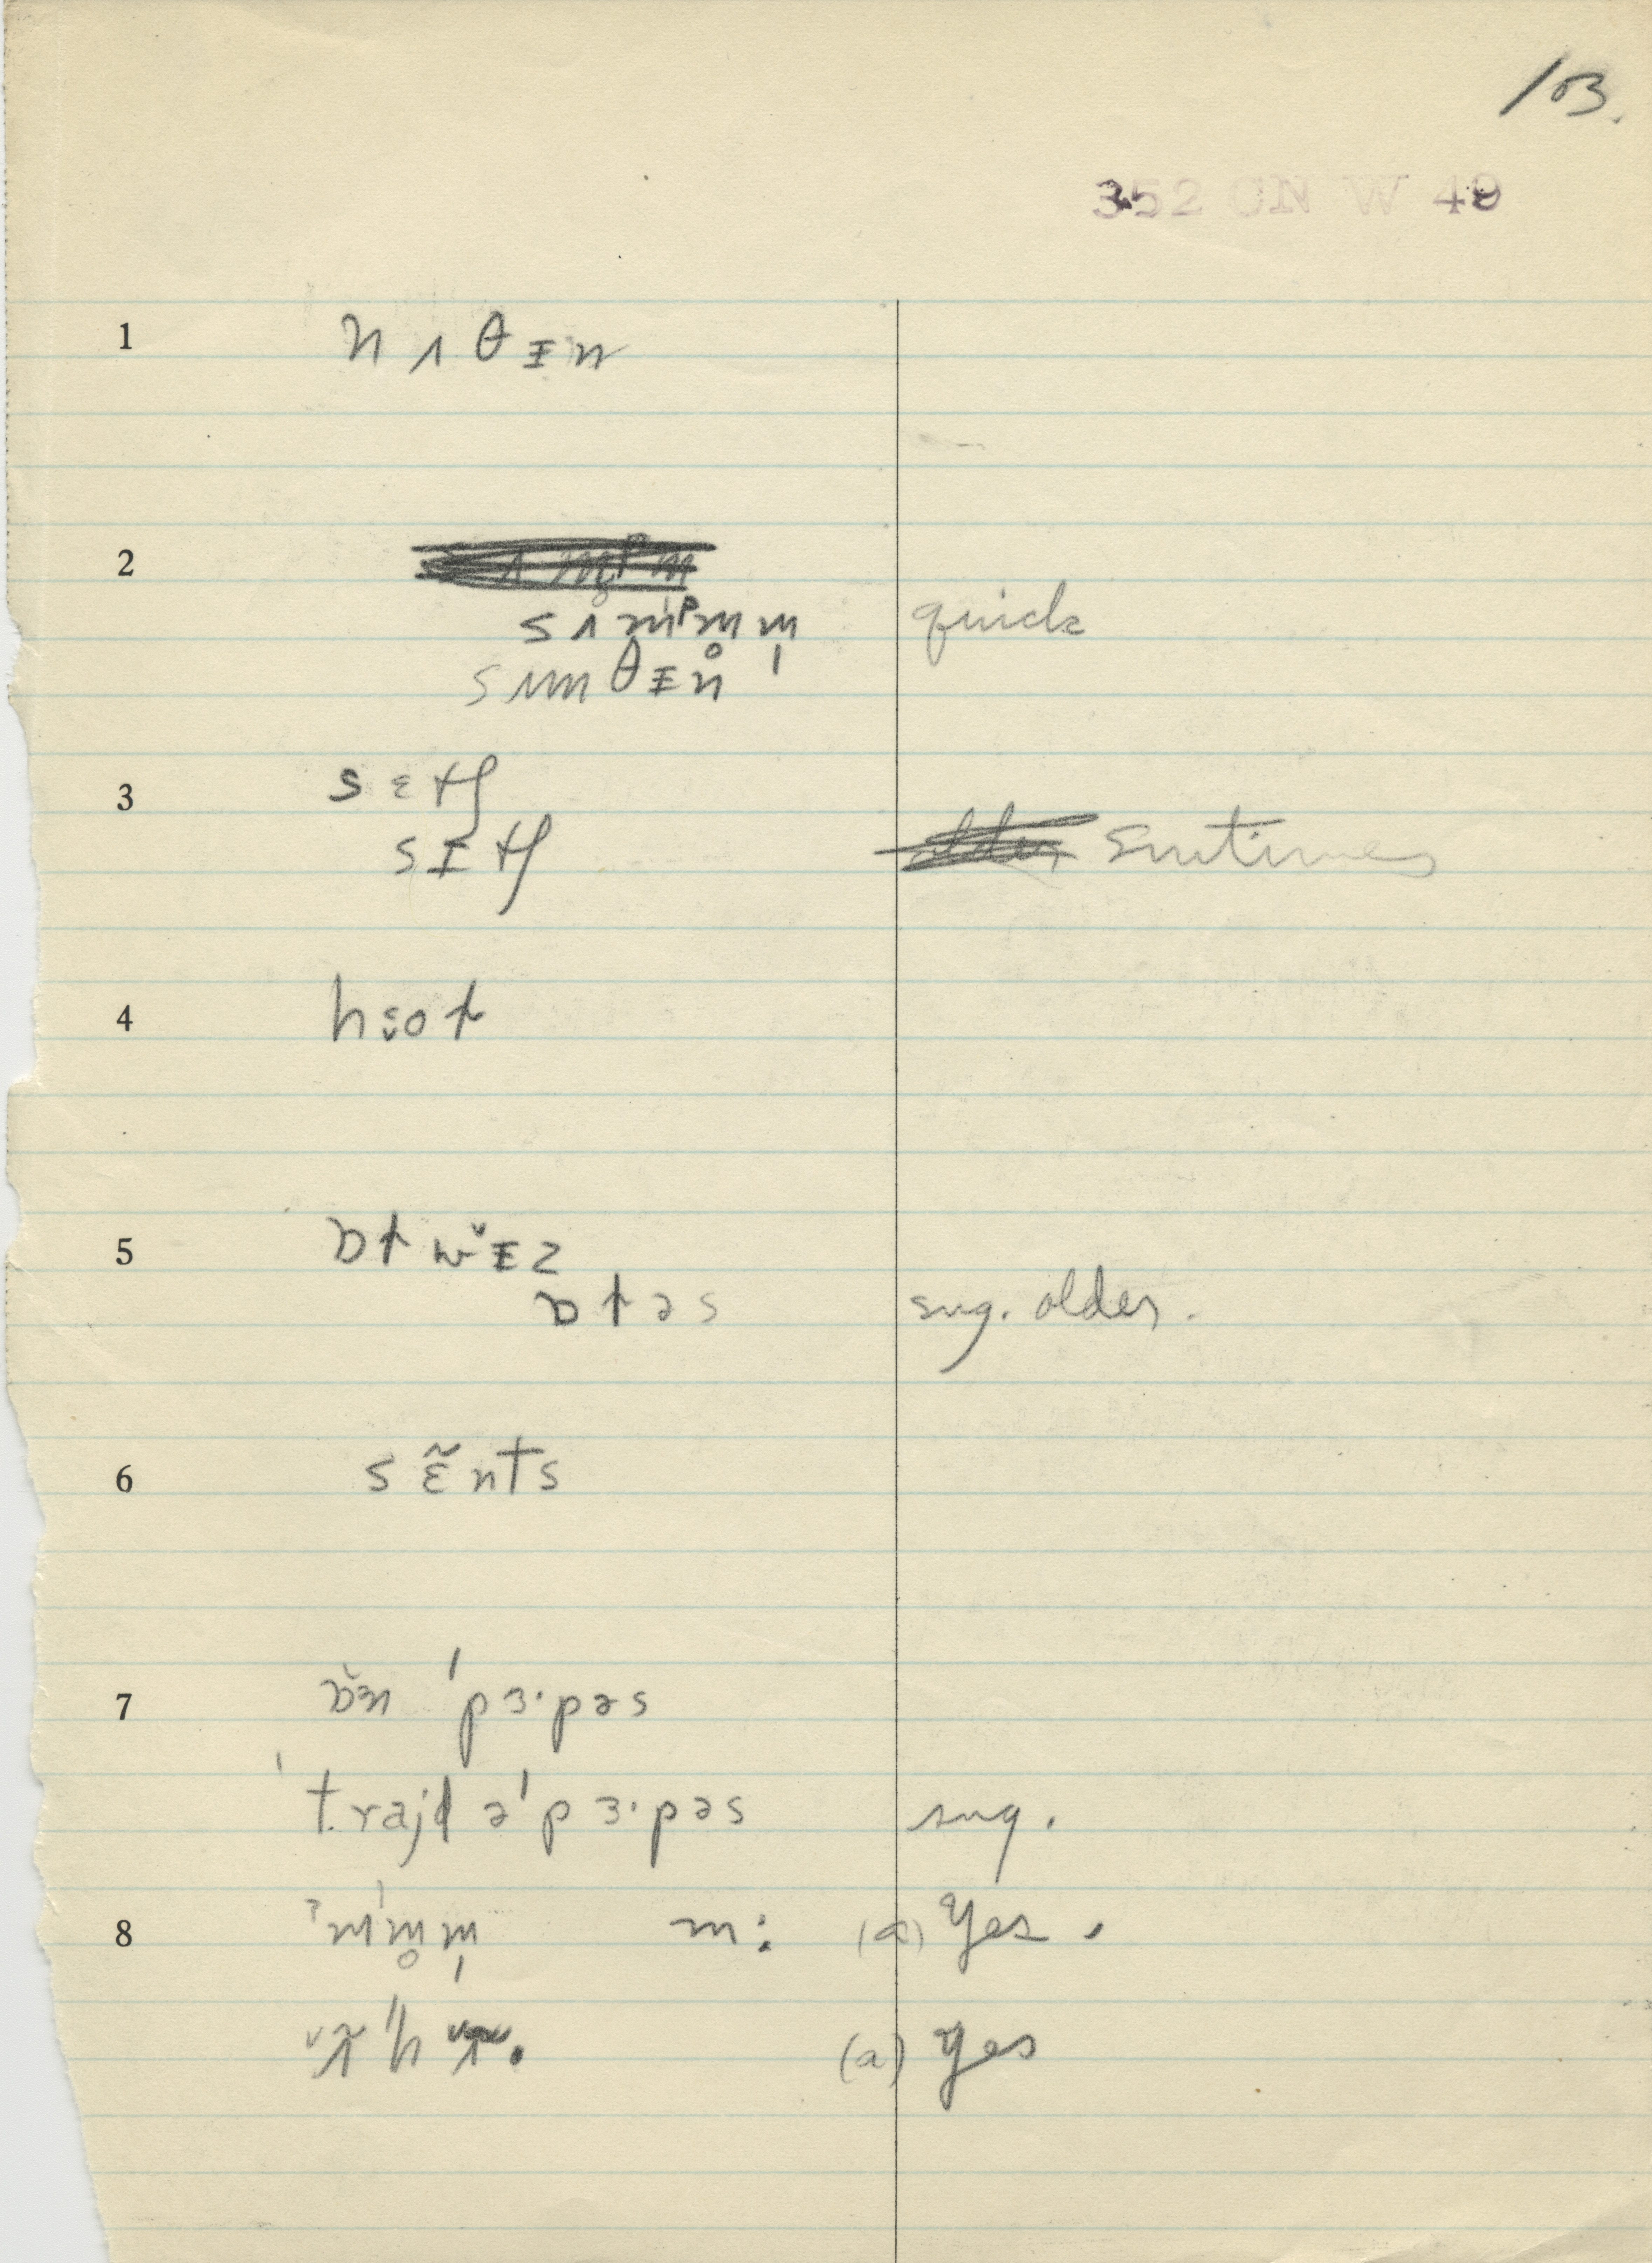 103.
352 ON W 49
1 nʌθɪn
2
sʌmᵖm̥m̩ quick
sʌmθɪn
3 sɛtʃ
sɪtʃ smtimes
4
5 ɒtwɪz
ɒtəs sug. older.
6 sɛ̃nts
7 ɒn ˈpɜ·pəs
ˈtrajd əˈpɜ·pəs sug.
8 ʔm̩ˈm̥m̩ m: (a) Yes.
ʌ̃ˈhʌ̃. (a) Yes